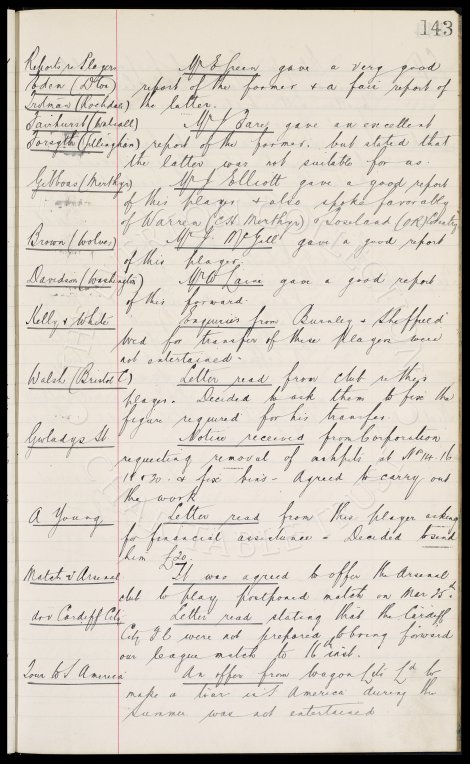 143
Reports re Players Mr E Green gave a very good
Eden (D'ton) report of the former & a fair report of
Tedman (Rochdale) the latter.
Fairhurst (Walsall) Mr J Fare gave an excellent
Forsyth (Gillingham) report of the former, but stated that
the latter was not suitable for us.
Gibbons (Merthyr) Mr J Elliott gave a good report
of this player & also spoke favorably
of Warren (C.H. Merthyr) & Loseland (OR) Coventry
Brown (Wolves) Mr J. McGill gave a good report
of this player.
Davidson (Washington) Mr W gave a good report
of this forward.
Kelly & White Enquiries from Burnley & Sheffield
Wed for transfer of these players were
not entertained.
Walsh (Bristol C) Letter read from club re this
player. Decided to ask them to fix the
figure required for his transfer.
Gwladys St Notice received from Corporation
requesting removal of ashpits at Nos 14. 16
18 & 20. & fix bins. Agreed to carry out
the work.
A Young Letter read from this player asking
for financial assistance. Decided to send
him £20.
Match v Arsenal It was agreed to offer the Arsenal
club to play postponed match on Mar 25th.
do v Cardiff City Letter read stating that the Cardiff
City F C were not prepared to bring forward
our league match to 16th inst.
Tour to S. America An offer from Wagon Lits Ld to
make a tour in S America during the
summer was not entertained